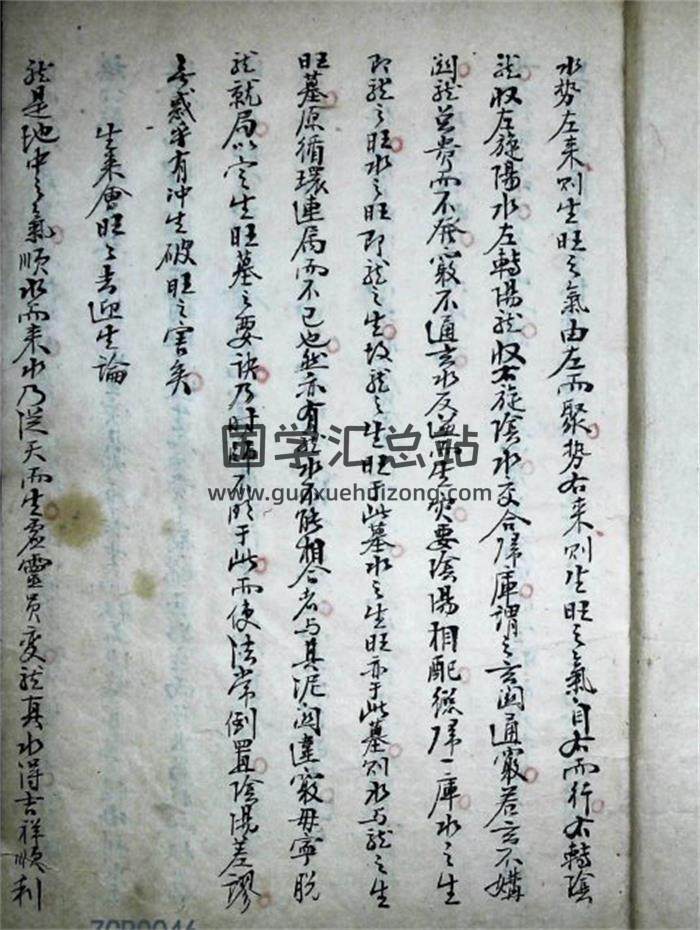 水势左来则生旺之氣由左而聚势右来则生旺之氣自右而行右轉陰
龙収左旋陽水左轉陽龙収右旋陰水交合歸庫谓之玄関通竅若玄不媾
関龙总贵而不發竅不通玄水反要陰陽相配總歸一庫水之生
即龙之旺水之旺即龙之生故龙之生旺于此墓水之生旺亦于此墓则水与龙之生
旺墓原循環連局而不已也然亦有龙水不能相合者与其泥関違竅毋寧脱
龙就局以定生旺墓之要诀乃时師不顾于此而使法常倒置陰陽差謬
無惑乎有冲生破旺之害矣
生来會旺旺去迎生論
龙是地中之氣順水而来水乃從天而生虚靈員变龙真水得吉祥順利
国学汇总站
www.guoxuehuizong.com